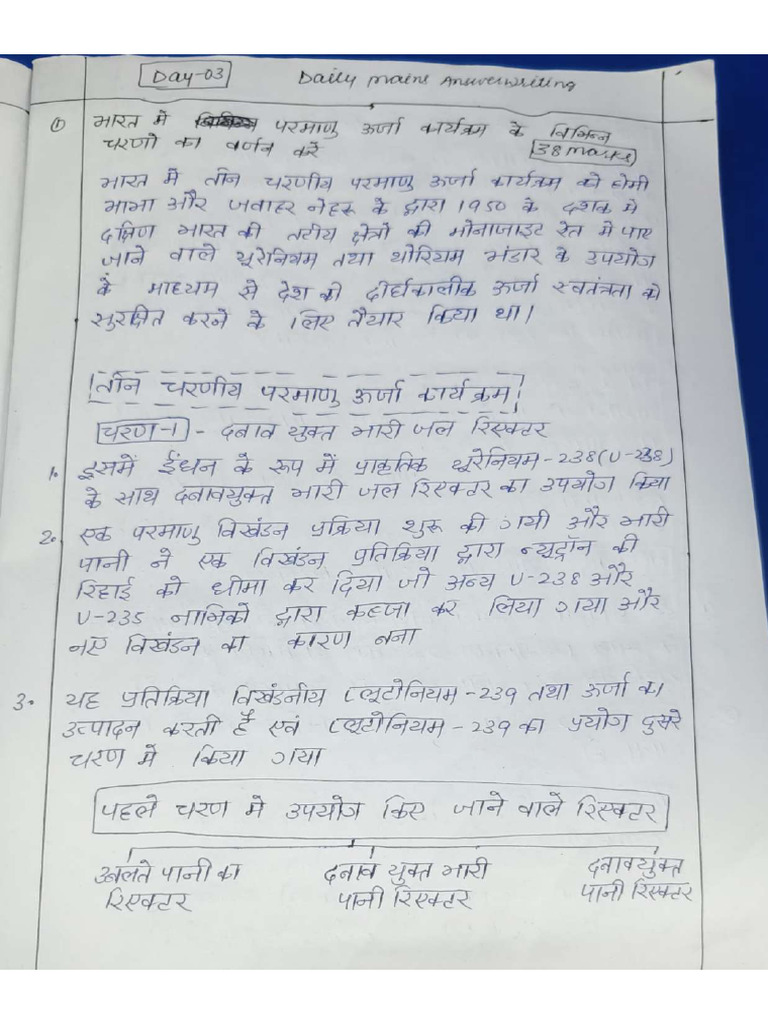 Day-03
Daily mains Answerwriting
① भारत मे परमाणु ऊर्जा कार्यक्रम के विभिन्न
चरणो का वर्णन करें
38 marks
भारत मे तीन चरणीय परमाणु ऊर्जा कार्यक्रम को होमी
भाभा और जवाहर नेहरू के द्वारा 1950 के दशक मे
दक्षिण भारत की तटीय क्षेत्रो की मोनाजाइट रेत मे पाए
जाने वाले यूरेनियम तथा थोरियम भंडार के उपयोग
के माध्यम से देश की दीर्घकालीक ऊर्जा स्वतंत्रता को
सुरक्षित करने के लिए तैयार किया था।
तीन चरणीय परमाणु ऊर्जा कार्यक्रम
चरण-1 - दबाव युक्त भारी जल रिएक्टर
1. इसमें ईंधन के रूप में प्राकृतिक यूरेनियम-238(U-238)
के साथ दबावयुक्त भारी जल रिएक्टर का उपयोग किया
2. एक परमाणु विखंडन प्रक्रिया शुरू की गयी और भारी
पानी ने एक विखंडन प्रतिक्रिया द्वारा न्यूट्रॉन की
रिहाई को धीमा कर दिया जो अन्य U-238 और
U-235 नाभिको द्वारा कब्जा कर लिया गया और
नए विखंडन का कारण बना
3. यह प्रतिक्रिया विखंडनीय प्लूटोनियम-239 तथा ऊर्जा का
उत्पादन करती है एवं प्लूटोनियम-239 का प्रयोग दुसरे
चरण मे किया गया
पहले चरण मे उपयोग किए जाने वाले रिएक्टर
उबलते पानी का दबाव युक्त भारी दबावयुक्त
रिएक्टर पानी रिएक्टर पानी रिएक्टर